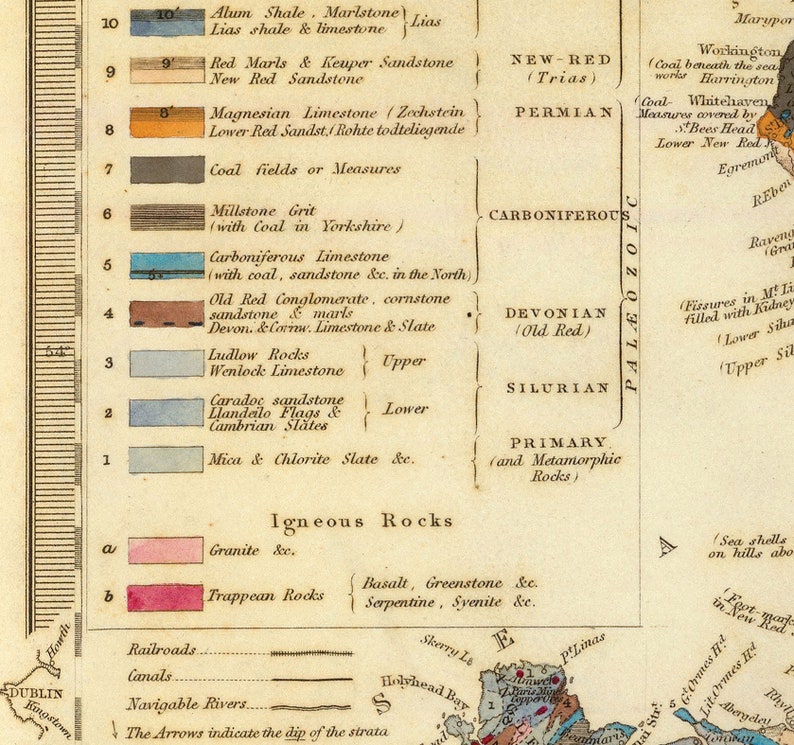 10 10' Alum Shale, Marlstone
Lias shale & limestone
Lias
9 9' Red Marls & Keuper Sandstone
New Red Sandstone
NEW-RED
(Trias)
8 8' Magnesian Limestone (Zechstein
Lower Red Sandst. (Rohte todteliegende
PERMIAN
7 Coal fields or Measures
6 Millstone Grit
(with Coal in Yorkshire)
5 Carboniferous Limestone
(with coal, sandstone &c. in the North)
CARBONIFEROUS
4 Old Red Conglomerate, cornstone
sandstone & marls
Devon. & Cornw. Limestone & Slate
DEVONIAN
(Old Red)
3 Ludlow Rocks
Wenlock Limestone
Upper
2 Caradoc sandstone
Llandeilo Flags &
Cambrian Slates
Lower
SILURIAN
PALÆOZOIC
1 Mica & Chlorite Slate &c.
PRIMARY
(and Metamorphic
Rocks)
Igneous Rocks
a Granite &c.
b Trappean Rocks
Basalt, Greenstone &c.
Serpentine, Syenite &c.
Railroads
Canals
Navigable Rivers
The Arrows indicate the dip of the strata
54°
Howth
DUBLIN
Kingstown
S
Marypor
Workington
(Coal beneath the sea
works Harrington
(Coal- Whitehaven
Measures covered by
St. Bees Head
Lower New Red)
Egremont
R.Ehen
Raveng
(Gra
(Fissures in Mt. Li
filled with Kidney
(Lower Silu
(Upper Sil
A
(Sea shells
on hills abo
(Foot-mark
in New Red
Skerry Is.
E
Pt. Linas
Holyhead Bay
S
Amlwch
Paris Mine
Copper Ore
1
4
Beaumaris
5
Gt. Ormes Hd.
Lit. Ormes Hd.
Abergeley
Rhyl
Conway